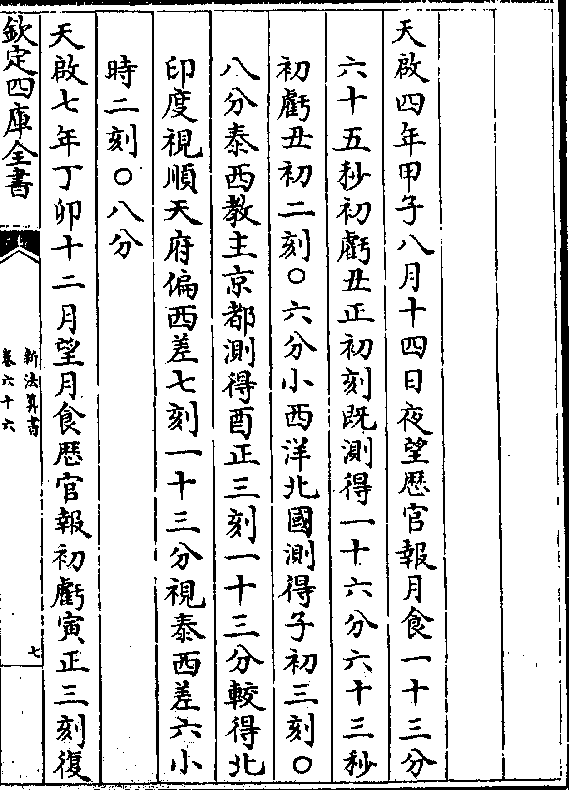 天啟四年甲子八月十四日夜望厯官報月食一十三分
六十五秒初虧丑正初刻既測得一十六分六十三秒
初虧丑初二刻〇六分小西洋北國測得子初三刻〇
八分泰西教主京都測得酉正三刻一十三分較得北
印度視順天府偏西差七刻一十三分視泰西差六小
時二刻〇八分
天啟七年丁卯十二月望月食厯官報初虧寅正三刻復
欽定四庫全書
新法算書
卷六十六
七